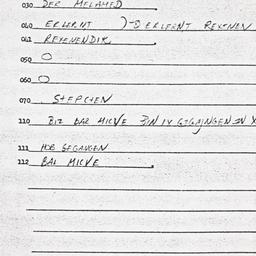 030 DER MELAMED
040 ERLERNT )-DERLERNT RECHNEN
042
050 O
060 O
070 STEPCHEN
110 BIZ BAR MICVE BIN IX GIGAJNGEN IN X
111 HOB GEGANGEN
112 BAI MICVE